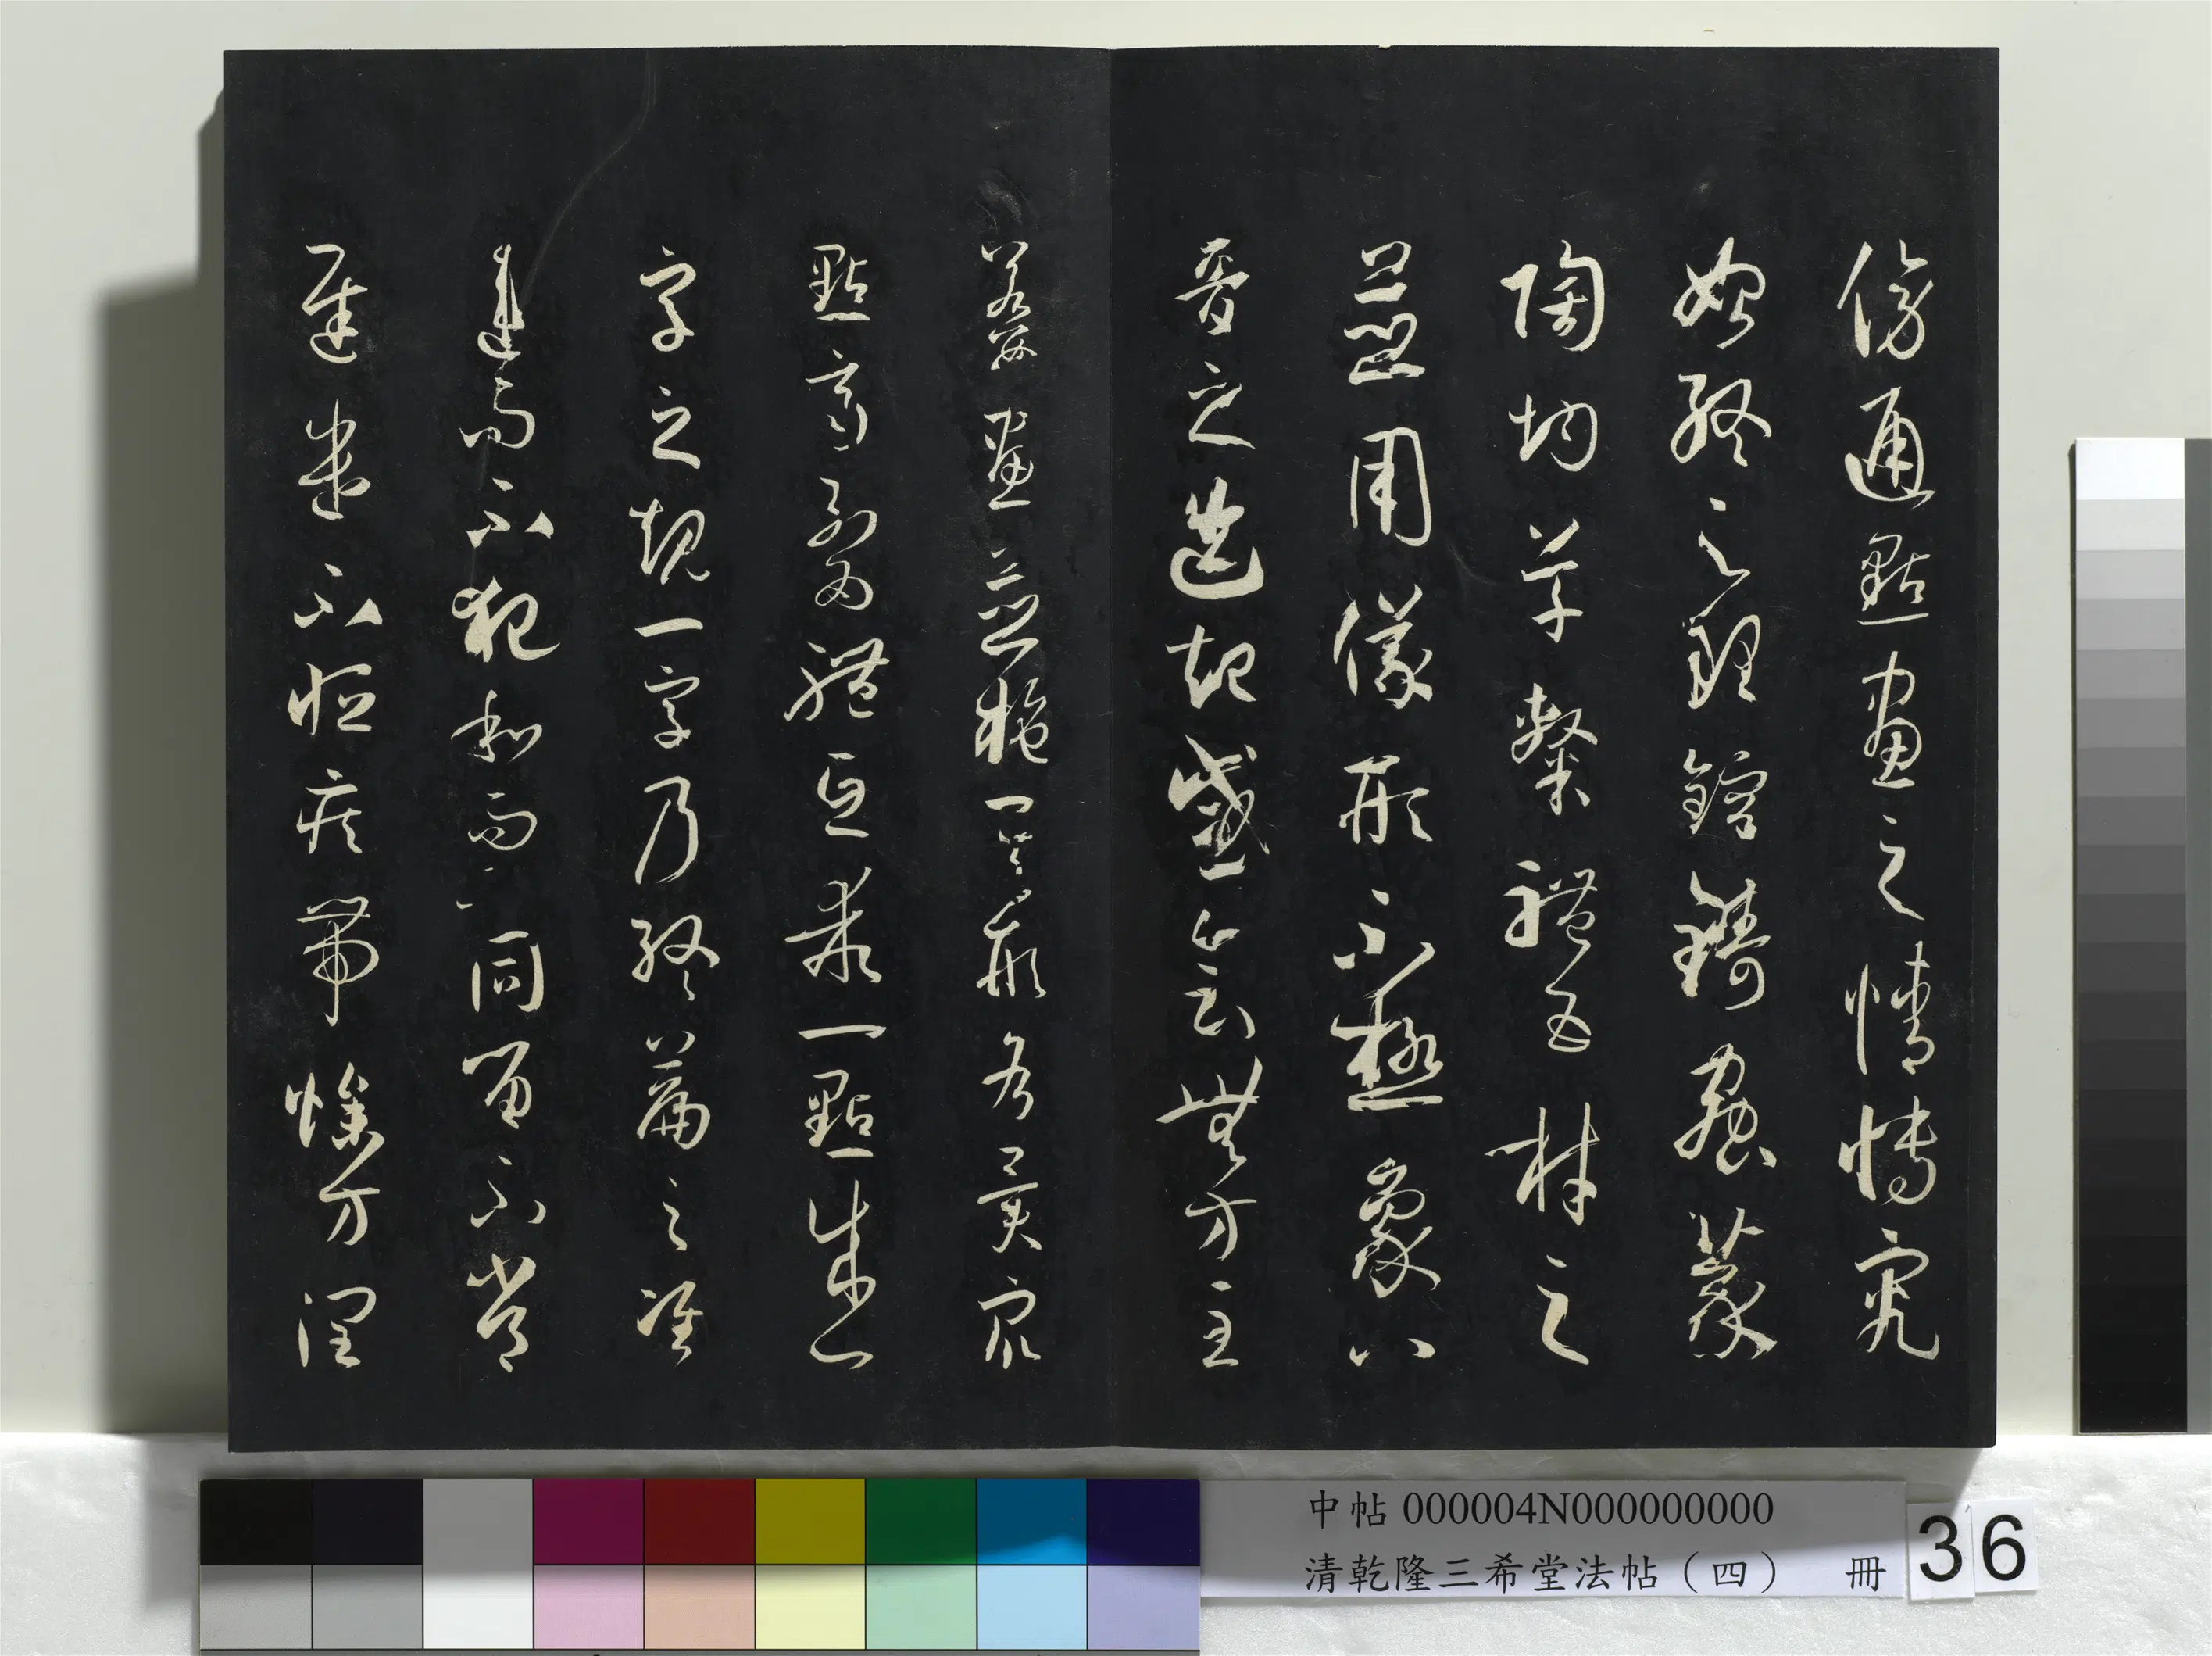 傍通點畫之情博究
始終之理鎔鑄蟲篆
陶均草隸體五材之
並用儀形不極象八
音之迭起感會無方至
若數畫並施其形各異眾
點齊列為體互乖一點成一
字之規一字乃終篇之准
違而不犯和而不同留不常
遲遣不恒疾帶燥方潤
中帖 000004N000000000
清乾隆三希堂法帖（四） 冊
36